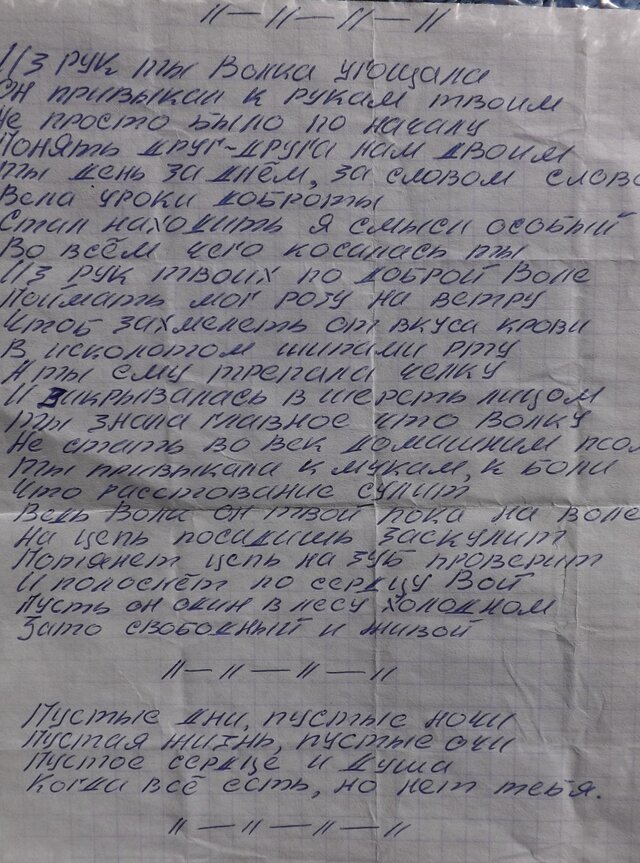 //—//—//—//
Из рук ты Волка угощала
Он привыкал к рукам твоим
Не просто было по началу
Понять друг-друга нам двоим
Ты день за днём, за словом слово
Вела уроки доброты
Стал находить я смысл особый
Во всём чего косалась ты
Из рук твоих по доброй Воле
Поймать мог розу на ветру
Чтоб захмелеть от вкуса крови
В исколотом шипами рту
А ты ему трепала челку
И зикрывалась в шерсть лицом
Ты знала главное что Волку
Не стать во век домашним псом
Ты привыкала к мукам, к боли
Что расствование сулит
Ведь Волк он твой пока на воле
На цепь посадишь заскулит
Потянет цепь на зуб проверит
И полоснёт по сердцу Вой
Пусть он один в лесу холодном
Зато свободный и живой
//—//—//—//
Пустые дни, пустые ночи
Пустая жизнь, пустые очи
Пустое сердце и душа
Когда всё есть, но нет тебя.
//—//—//—//